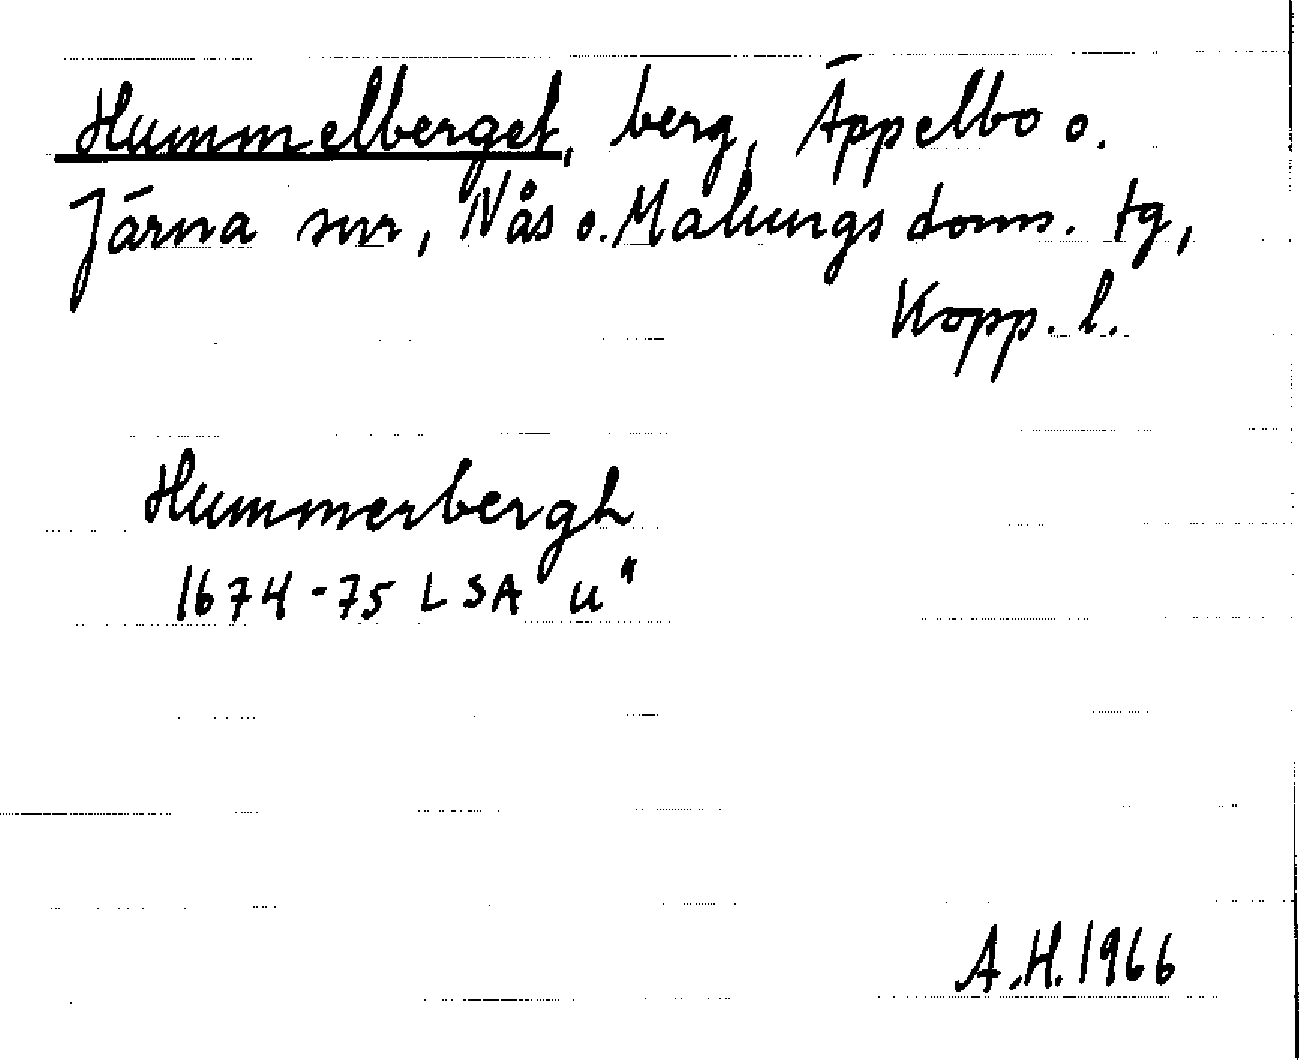 Hummelberget, berg, Äppelbo o.
Järna snr, Nås o. Malungs doms. tg,
Kopp. l.
Hummerbergh
1674-75 LSA "u"
A.H. 1966